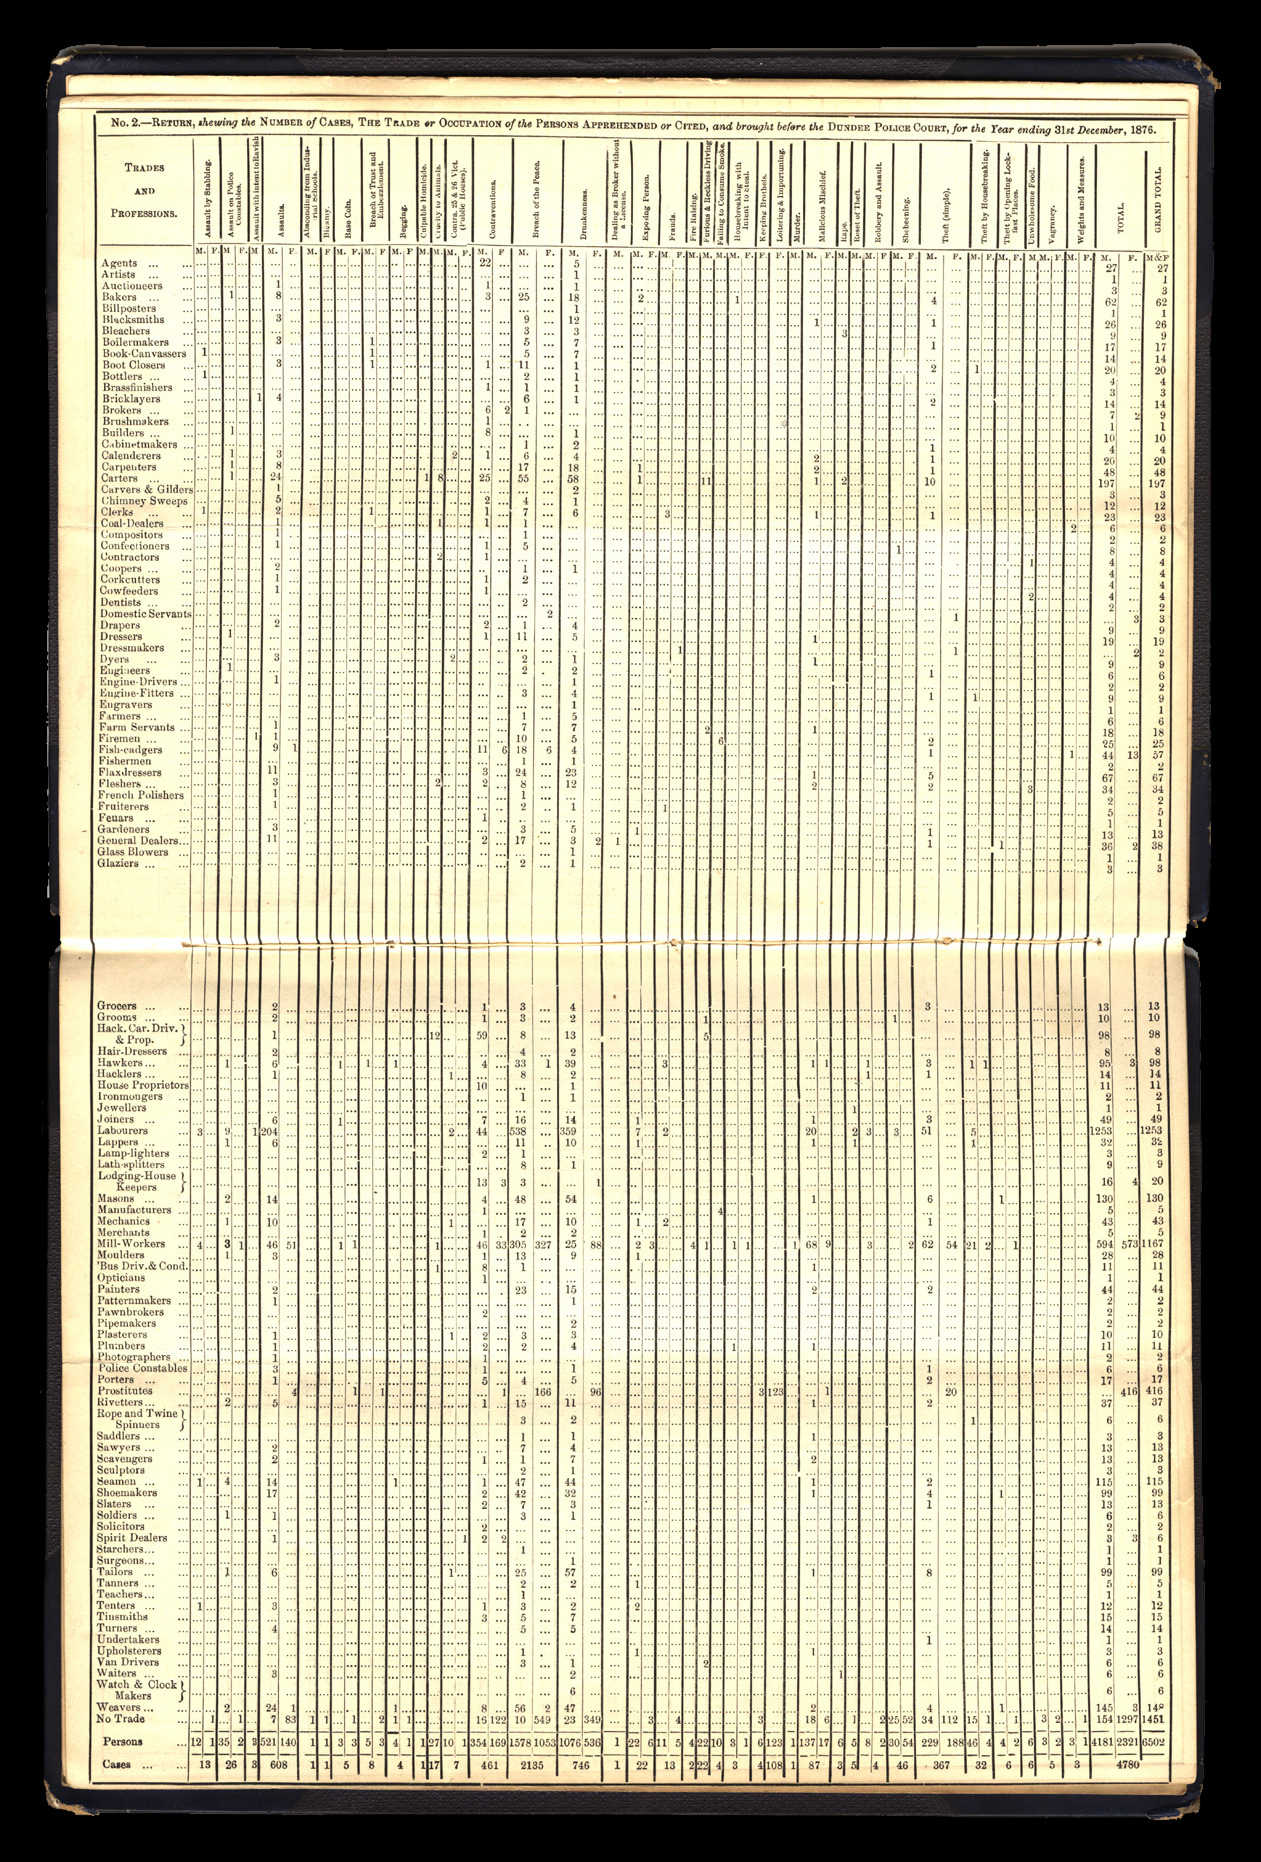 No. 2.—RETURN, shewing the NUMBER of CASES, THE TRADE or OCCUPATION of the PERSONS APPREHENDED or CITED, and brought before the DUNDEE POLICE COURT, for the Year ending 31st December, 1876.
TRADES
AND
PROFESSIONS.
Assault by Stabbing.
Assault on Police Constables.
Assault with intent to Ravish
Assaults.
Absconding from Industrial Schools.
Bigamy.
Base Coin.
Breach of Trust and Embezzlement.
Begging.
Culpable Homicide.
Cruelty to Animals.
Contra. 25 & 26 Vict. (Public Houses).
Contraventions.
Breach of the Peace.
Drunkenness.
Dealing as Broker without a License.
Exposing Person.
Frauds.
Fire Raising.
Furious & Reckless Driving
Failing to Consume Smoke.
Housebreaking with Intent to Steal.
Keeping Brothels.
Loitering & Importuning.
Murder.
Malicious Mischief.
Rape.
Reset of Theft.
Robbery and Assault.
Shebeening.
Theft (simple),
Theft by Housebreaking.
Theft by Opening Lock-fast Places.
Unwholesome Food.
Vagrancy.
Weights and Measures.
TOTAL.
GRAND TOTAL
Agents ... 22 5 27 27
Artists ... 1 1 1
Auctioneers 1 1 1 3 3
Bakers ... 1 8 3 25 18 2 1 4 62 62
Billposters 1 1 1
Blacksmiths 3 9 12 1 1 26 26
Bleachers 3 3 3 9 9
Boilermakers 3 1 5 7 1 17 17
Book-Canvassers 1 1 5 7 14 14
Boot Closers 3 1 1 11 1 2 1 20 20
Bottlers ... 1 2 1 4 4
Brassfinishers 1 1 1 3 3
Bricklayers 1 4 6 1 2 14 14
Brokers ... 6 2 1 7 2 9
Brushmakers 1 1 1
Builders ... 1 8 1 10 10
Cabinetmakers ... 1 2 1 4 4
Calenderers 1 3 2 1 6 4 2 1 20 20
Carpenters 1 8 17 18 1 2 1 48 48
Carters ... 1 24 1 8 25 55 58 1 11 1 2 10 197 197
Carvers & Gilders 1 2 3 3
Chimney Sweeps 5 2 4 1 12 12
Clerks ... 1 2 1 1 7 6 3 1 1 23 23
Coal-Dealers 1 1 1 1 2 6 6
Compositors 1 1 2 2
Confectioners 1 1 5 1 8 8
Contractors 2 1 1 4 4
Coopers ... 2 1 1 4 4
Corkcutters 1 1 2 4 4
Cowfeeders 1 1 2 4 4
Dentists ... 2 2 2
Domestic Servants 2 1 3 3
Drapers 2 2 1 4 9 9
Dressers 1 1 11 5 1 19 19
Dressmakers 1 1 2 2
Dyers 3 2 2 1 1 9 9
Engineers 1 2 2 1 6 6
Engine-Drivers ... 1 1 2 2
Engine-Fitters ... 3 4 1 1 9 9
Engravers 1 1 1
Farmers ... 1 5 6 6
Farm Servants ... 1 7 7 2 1 18 18
Firemen ... 1 1 10 5 6 2 25 25
Fish-cadgers 9 1 11 6 18 6 4 1 1 44 13 57
Fishermen 1 1 2 2
Flaxdressers 11 3 24 23 1 5 67 67
Fleshers ... 3 2 2 8 12 2 2 3 34 34
French Polishers 1 1 2 2
Fruiterers 1 2 1 1 5 5
Feuars ... 1 1 1
Gardeners 3 3 5 1 1 13 13
General Dealers... 11 2 17 3 2 1 1 1 36 2 38
Glass Blowers ... 1 1 1
Glaziers ... 2 1 3 3
Grocers ... 2 1 3 4 3 13 13
Grooms ... 2 1 3 2 1 1 10 10
Hack. Car. Driv.
& Prop. 1 12 59 8 13 5 98 98
Hair-Dressers ... 2 4 2 8 8
Hawkers ... 1 6 1 1 1 4 33 1 39 3 1 1 1 3 1 1 95 3 98
Hacklers ... 1 1 8 2 1 1 14 14
House Proprietors 10 1 11 11
Ironmongers 1 1 2 2
Jewellers 1 1 1
Joiners ... 6 1 7 16 14 1 1 3 49 49
Labourers 3 9 1 204 2 44 538 359 7 2 20 2 3 3 51 5 1253 1253
Lappers ... 1 6 11 10 1 1 1 1 32 32
Lamp-lighters 2 1 3 3
Lath-splitters 8 1 9 9
Lodging-House
Keepers 13 3 3 1 16 4 20
Masons ... 2 14 4 48 54 1 6 1 130 130
Manufacturers ... 1 4 5 5
Mechanics 1 10 1 17 10 1 2 1 43 43
Merchants 1 2 2 5 5
Mill-Workers 4 3 1 46 51 1 1 1 46 33 305 327 25 88 2 3 4 1 1 1 1 68 9 3 2 62 54 21 2 1 594 573 1167
Moulders 1 3 1 13 9 1 28 28
'Bus Driv. & Cond. 1 8 1 1 11 11
Opticians 1 1 1
Painters 2 23 15 2 2 44 44
Patternmakers ... 1 1 2 2
Pawnbrokers 2 2 2
Pipemakers 2 2 2
Plasterers 1 1 2 3 3 10 10
Plumbers 1 2 2 4 1 1 11 11
Photographers ... 1 1 2 2
Police Constables 3 1 1 1 6 6
Porters ... 1 5 4 5 2 17 17
Prostitutes 4 1 1 1 166 96 3 123 1 20 416 416
Rivetters ... 2 5 1 15 11 1 2 37 37
Rope and Twine
Spinners 3 2 1 6 6
Saddlers ... 1 1 1 3 3
Sawyers ... 2 7 4 13 13
Scavengers 2 1 1 7 2 13 13
Sculptors 2 1 3 3
Seamen ... 1 4 14 1 1 47 44 1 2 115 115
Shoemakers 17 2 42 32 1 4 1 99 99
Slaters ... 2 7 3 1 13 13
Soldiers ... 1 1 3 1 6 6
Solicitors 2 2 2
Spirit Dealers 1 1 2 2 3 3 6
Starchers... 1 1 1
Surgeons... 1 1 1
Tailors ... 1 6 1 25 57 1 8 99 99
Tanners ... 2 2 1 5 5
Teachers... 1 1 1
Tenters ... 1 3 1 3 2 2 12 12
Tinsmiths 3 5 7 15 15
Turners ... 4 5 5 14 14
Undertakers 1 1 1
Upholsterers 1 1 1 3 3
Van Drivers 3 1 2 6 6
Waiters ... 3 2 1 6 6
Watch & Clock
Makers 6 6 6
Weavers ... 2 24 1 1 8 56 2 47 2 4 1 145 3 148
No Trade 1 1 7 83 1 1 1 2 1 1 16 122 10 549 23 349 3 4 3 18 6 1 2 25 52 34 112 15 1 1 3 2 1 154 1297 1451
Persons ... 12 1 35 2 3 521 140 1 1 3 3 5 3 4 1 1 27 10 1 354 169 1578 1053 1076 536 1 22 6 11 5 4 22 10 3 1 6 123 1 137 17 6 5 8 2 30 54 229 188 46 4 4 2 6 3 2 3 1 4181 2321 6502
Cases ... 13 26 3 608 1 1 5 8 4 1 17 7 461 2135 746 1 22 13 2 22 4 3 4 108 1 87 3 5 4 46 367 32 6 6 5 3 4780